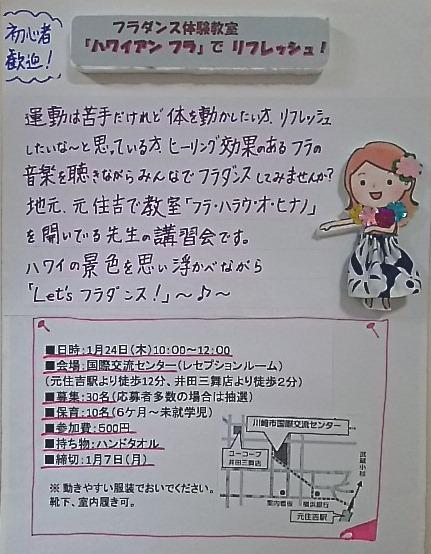 初心者
歓迎!
フラダンス体験教室
「ハワイアン フラ」で リフレッシュ!
運動は苦手だけれど 体を動かしたい方、リフレッシュ
したいな〜と 思っている方、ヒーリング効果のある フラの
音楽を聴きながら みんなで フラダンス してみませんか?
地元、元住吉で教室「フラ・ハラウ・オ・ヒナノ」
を開いている先生の講習会です。
ハワイの景色を思い浮かべながら
「Let's フラダンス!」〜♪〜
■日時:1月24日(木)10:00~12:00
■会場:国際交流センター(レセプションルーム)
(元住吉駅より徒歩12分、井田三舞店より徒歩2分)
■募集:30名(応募者多数の場合は抽選)
■保育:10名(6ケ月~未就学児)
■参加費:500円
■持ち物:ハンドタオル
■締切:1月7日(月)
※ 動きやすい服装でおいでください。
靴下、室内履き可。
川崎市国際交流センター
ユーコープ
井田三舞店
武蔵小杉
案内看板
横浜銀行
元住吉駅